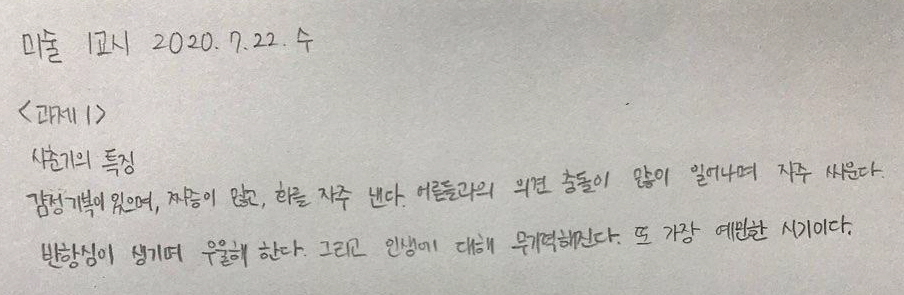 미술 1교시 2020. 7. 22. 수
<과제1>
사춘기의 특징
감정기복이 있으며, 짜증이 많고, 화를 자주 낸다. 어른들과의 의견 충돌이 많이 일어나며 자주 싸운다.
반항심이 생기며 우울해 한다. 그리고 인생에 대해 무기력해진다. 또 가장 예민한 시기이다.